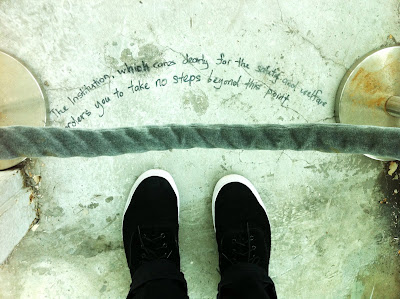 The Institution, which cares dearly for the safety and welfare
orders you to take no steps beyond this point